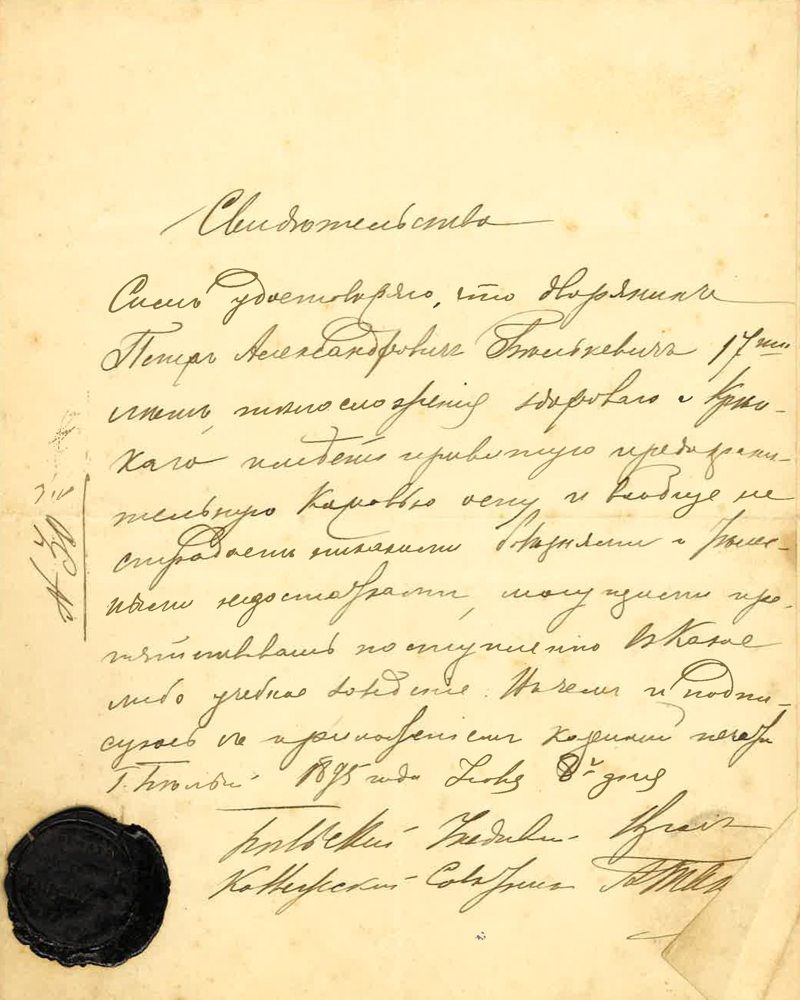 Свидѣтельство
Симъ удостовѣряю, что дворянинъ
Петръ Александровичъ 17ти
лѣтъ, тѣлосложенія здороваго и крѣп-
каго имѣетъ привитую предохрани-
тельную коровью оспу и вообще не
страдаетъ никакими болѣзнями и тѣлес-
ными недостатками, могущими пре-
пятствовать поступленію въ какое
либо учебное заведеніе. Въ чемъ и подпи-
суюсь съ приложеніемъ казенной печати
Г. Бѣльскъ 1895 года Іюня 8го дня
Бѣльскій Уѣздный Врачъ
Коллежскій Совѣтникъ
№ 30